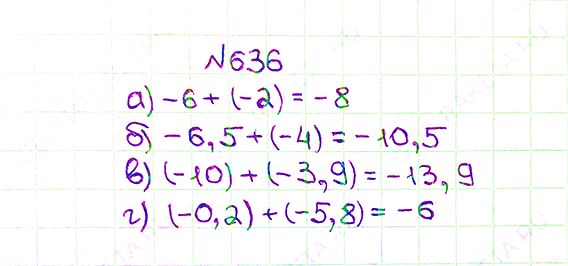 №636
а) -6 + (-2) = -8
б) -6,5 + (-4) = -10,5
в) (-10) + (-3,9) = -13,9
г) (-0,2) + (-5,8) = -6